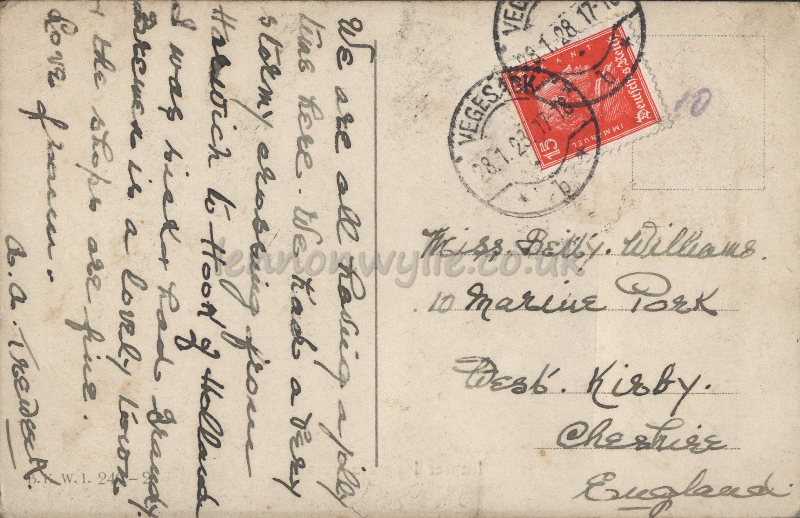 We are all having a jolly
time here. We had a very
stormy crossing from
Harwich to Hook of Holland
I was sick & had Brandy.
Bremen is a lovely town
& the shops are fine.
Love from
Miss. Betty. Williams.
10 Marine Park
West. Kirby.
Cheshire
England.
VEGESACK
28.1.28.17-18
* b *
28.1.28.17-18
* b
Deutsches Reich
IMMANUEL
15
10
lennonwylie.co.uk
B.K.W.I.